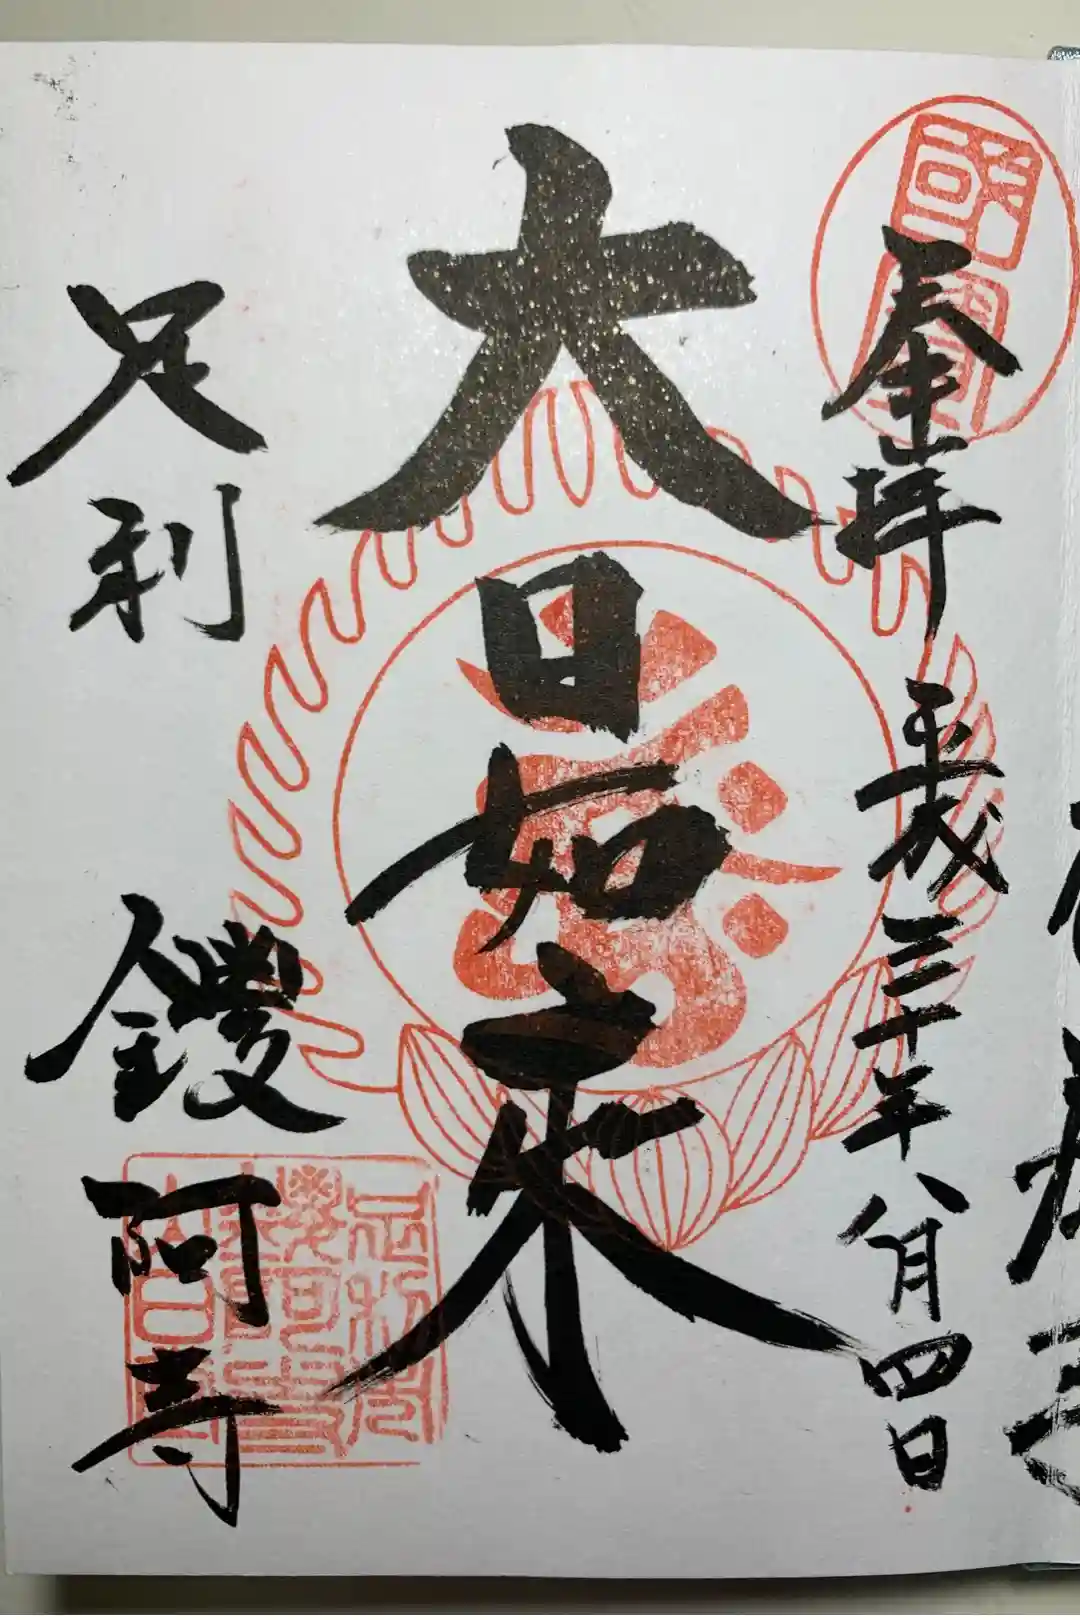 奉拝 平成三十年八月四日
大日如来
足利 鑁阿寺
國寶